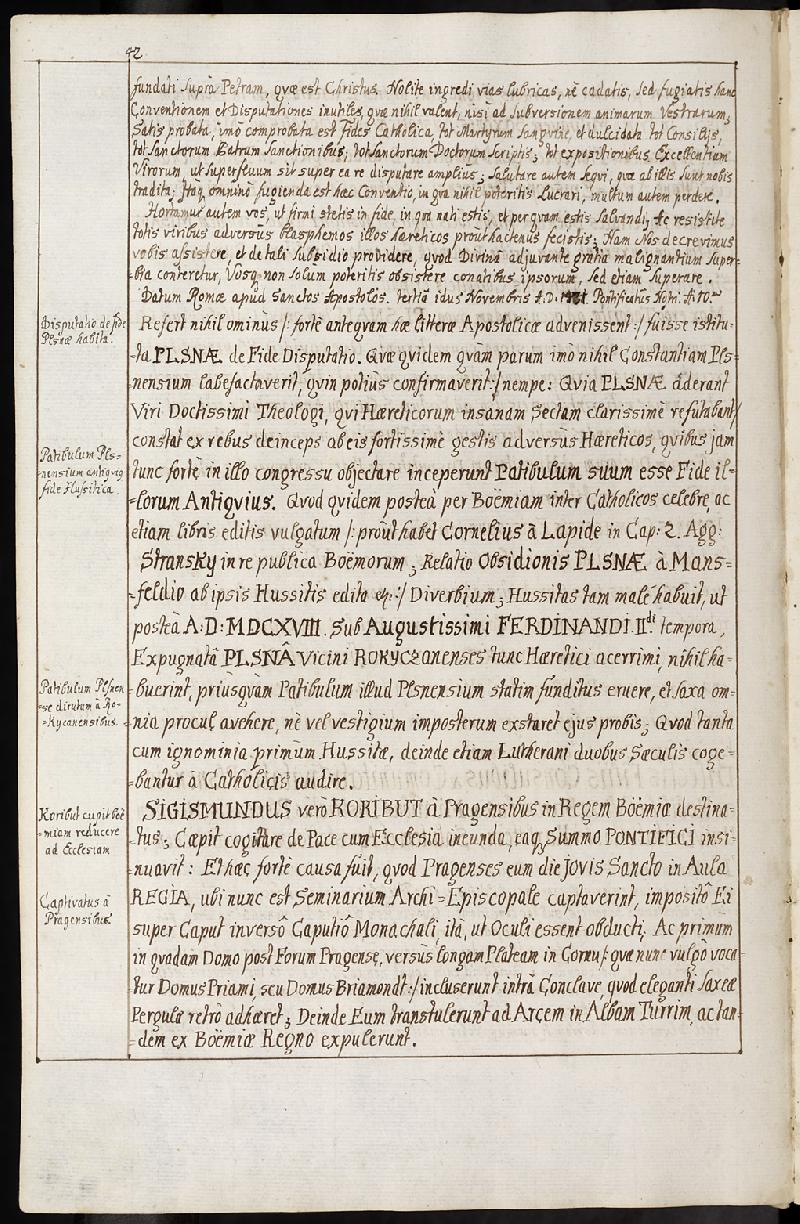 42.
fundati supra Petram, quæ est Christus. Nolite ingredi vias lubricas, nè cadatis, sed fugiatis hanc
Conventionem et Disputationes inutiles, quæ nihil valent, nisi ad Subversionem animarum Vestrarum;
Satis probata, imò comprobata est Fides Catholica, tot Martyrum Sangvine, et dulcidata tot Consilijs,
tot Sanctorum Patrum Sanctionibus; tot Sanctorum Doctorum Scriptis; tot expositionibus Excellentium
Virorum, ut superfluum sit super ea re disputare amplius; Salutare autem Seqvi, quæ ab illis sunt nobis
tradita; Itaq omninò fugienda est hæc Conventio, in qva nihil poteritis Lucrari, multum autem perdere.
Hortamur autem vos, ut firmi stetis in fide, in qva nati estis, et per qvam estis Salvandi, Ac resistite
totis viribus adversùs blasphemos illos hæreticos prout hactenus fecistis; Nam Nos decrevimus
vobis assistere, et de tali Subsidio providere, qvod Divinâ adjuvante gratiâ malignantium super-
-bia conteretur, Vosq non solum poteritis obsistere conatibus ipsorum, Sed etiam Superare.
Datum Romæ apud Sanctos Apostolos. tertiâ idus Novembris A.D. Pontificatûs Nostri A: 10.mo
Disputatio de fide
Plsnæ habita.
Refert nihilominus /: fortè anteqvam hæ litteræ Apostolicæ advenissent :/ fuisse istitu-
-ta PLSNÆ de Fide Disputatio. Qvæ qvidem qvàm parum imò nihil Constantiam Pls-
nensium labefactaverit, qvin potius confirmaverit :/ nempe: Qvia PLSNÆ aderant
Viri Doctissimi Theologi, qvi Hæreticorum insanam Sectam clarissimè refutabant/
constat ex rebus deinceps ab eis fortissimè gestis adversùs Hæreticos, qvibus jam
Patibulum Pls-
-nensium antiqviq
fide Hussitica.
tunc fortè in illo congressu objectare inceperunt Patibulum suum esse Fide il-
-lorum Antiqvius. Qvod qvidem posteà per Boëmiam inter Catholicos celebre, ac
etiam libris editis vulgatum /: prout habet Cornelius à Lapide in Cap: 2. Agg:
Stransky in re publica Boëmorum; Relatio Obsidionis PLSNÆ à Mans-
-feldio ab ipsis Hussitis edita &c :/ Diverbium; Hussitas tam malè habuit, ut
posteà A: D: MDCXVIII. Sub Augustissimi FERDINANDI. II.di tempora,
Expugnatâ PLSNÂ Vicini ROKYCZANENSES tunc Hæretici acerrimi, nihil ha-
Patibulum Plsnen
-se dirutum à Ro-
-kycanensibus.
buerint, priusqvàm Patibulum illud Plsnensium statim funditus eruere, et saxa om-
nia procul avehere, nè vel vestigium imposterum exstaret ejus probis; Qvod tanta
cum ignominia primùm Hussitæ, deinde etiam Lutherani duobus Sæculis coge-
bantur à Catholicis audire.
Koribut cupit Boë
-miam reducere
ad Ecclesiam
SIGISMUNDUS verò KORIBUT à Pragensibus in Regem Boëmiæ destina-
-tus; Cæpit cogitare de Pace cum Ecclesia ineunda, eaq Summo PONTIFICI insi-
nuavit: Et hæc fortè causa fuit, qvod Pragenses eum die JOVIS Sancto in Aula
Captivatus à
Pragensibus
REGIA, ubi nunc est Seminarium Archi-Episcopale captaverint, impositô Ei
super Caput inversô Caputiô Monachali ità, ut Oculi essent obducti; Ac primùm
in qvadam Domo post Forum Pragense, versùs longam Plateam in Cornu /: qvæ nunc vulgò voca
-tur Domus Priami, seu Domus Briamondt :/ incluserunt intrà Conclave, qvod eleganti saxeæ
Pergulæ retrò adhæret; Deinde Eum transtulerunt ad Arcem in Albam Turrim, ac tan-
dem ex Boëmiæ Regno expulerunt.